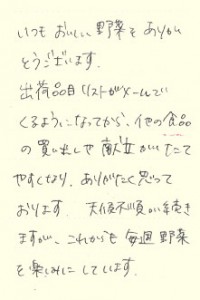 いつもおいしい野菜をありが
とうございます。
出荷品目リストがメールで
くるようになってから、他の食品
の買い出しや献立がたて
やすくなり、ありがたく思って
おります。天候不順が続き
ますが、これからも毎週野菜
を楽しみにしています。